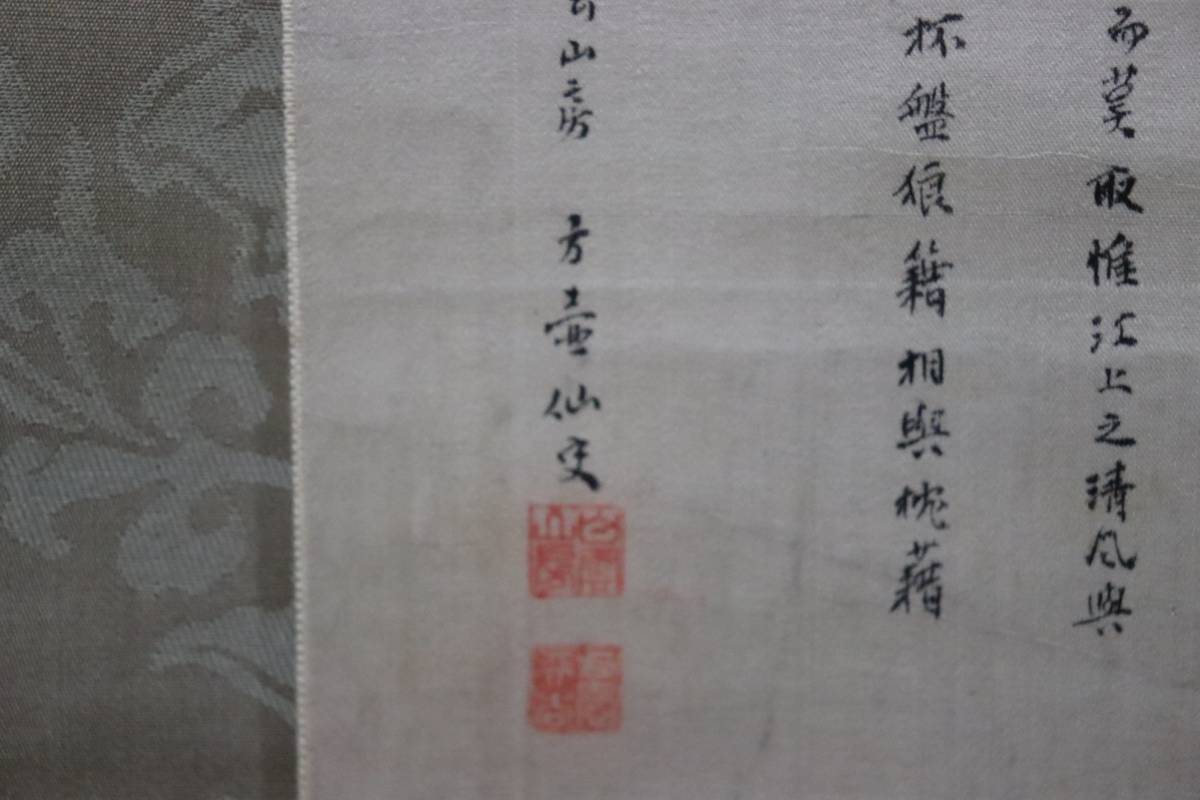 而莫取惟江上之清風與
杯盤狼籍相與枕藉
山房 方壺仙史